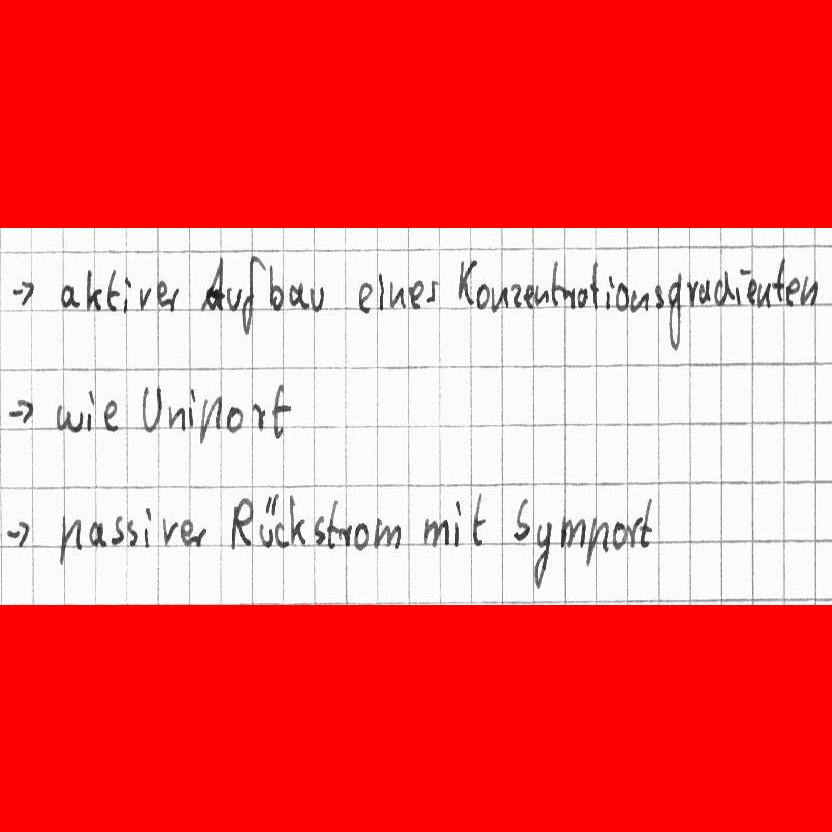 → aktiver Aufbau eines Konzentrationsgradienten
→ wie Uniport
→ passiver Rückstrom mit Symport